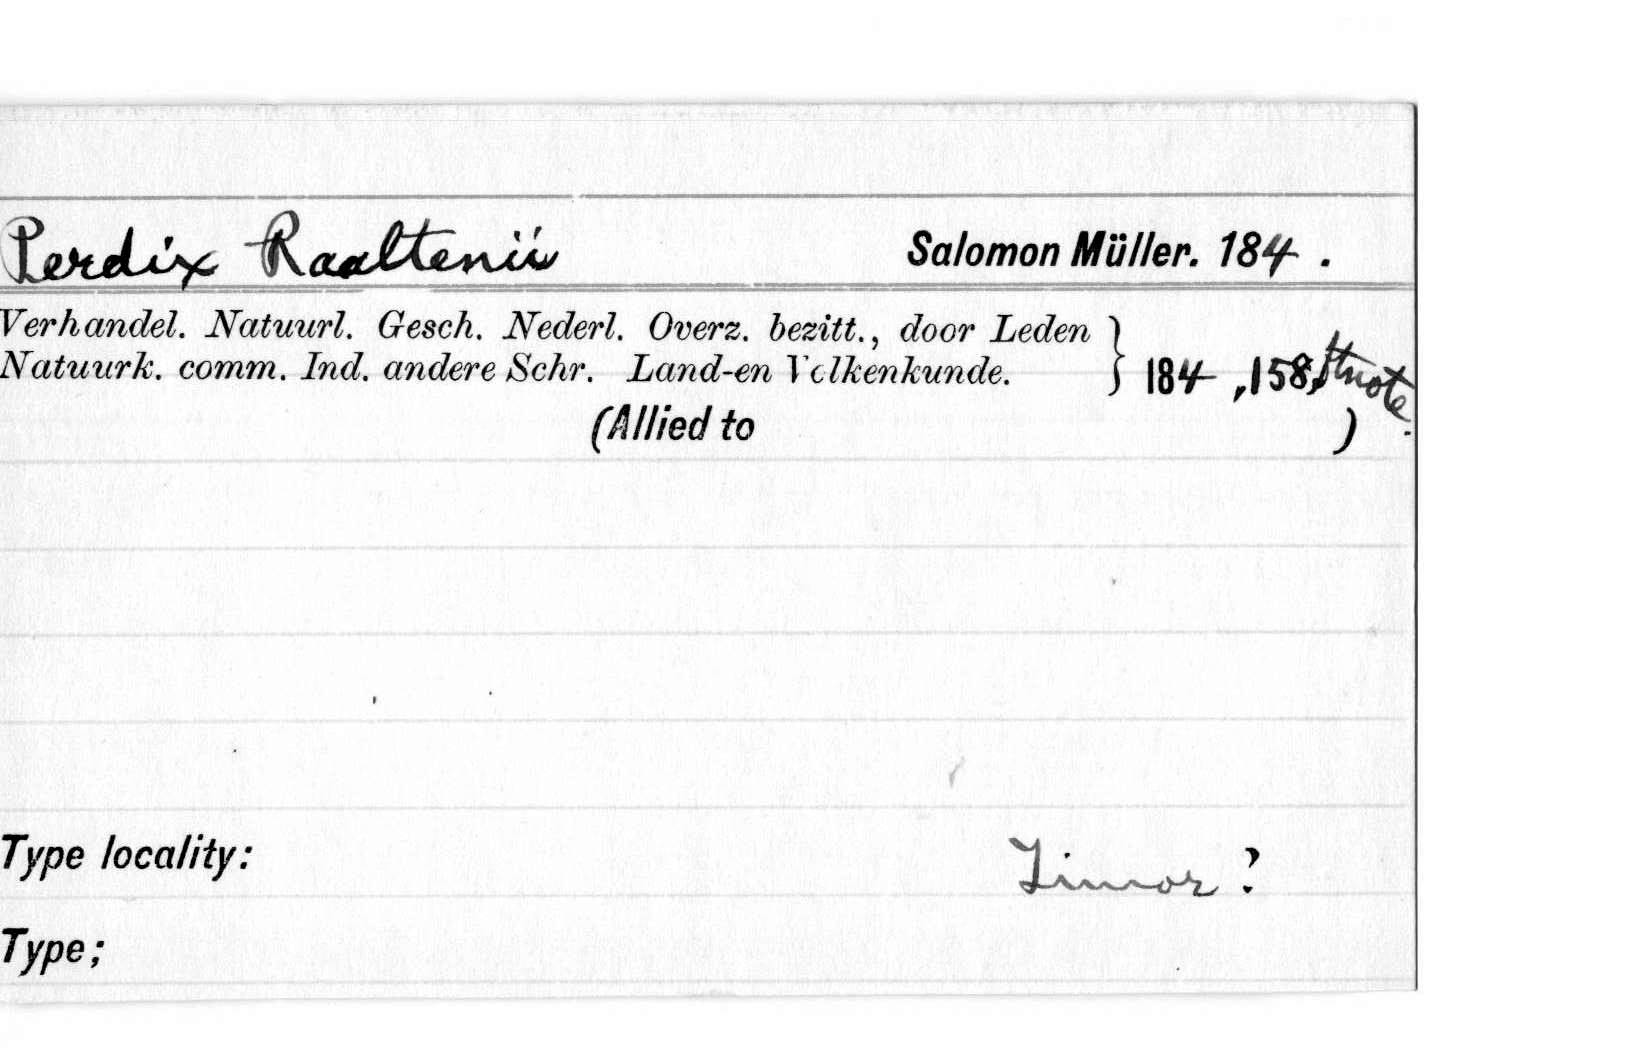 Perdix Raaltenii Salomon Müller. 184 .
Verhandel. Natuurl. Gesch. Nederl. Overz. bezitt., door Leden
Natuurk. comm. Ind. andere Schr. Land-en Volkenkunde. } 184 ,158, ftnote.
(Allied to )
Type locality: Timor ?
Type;